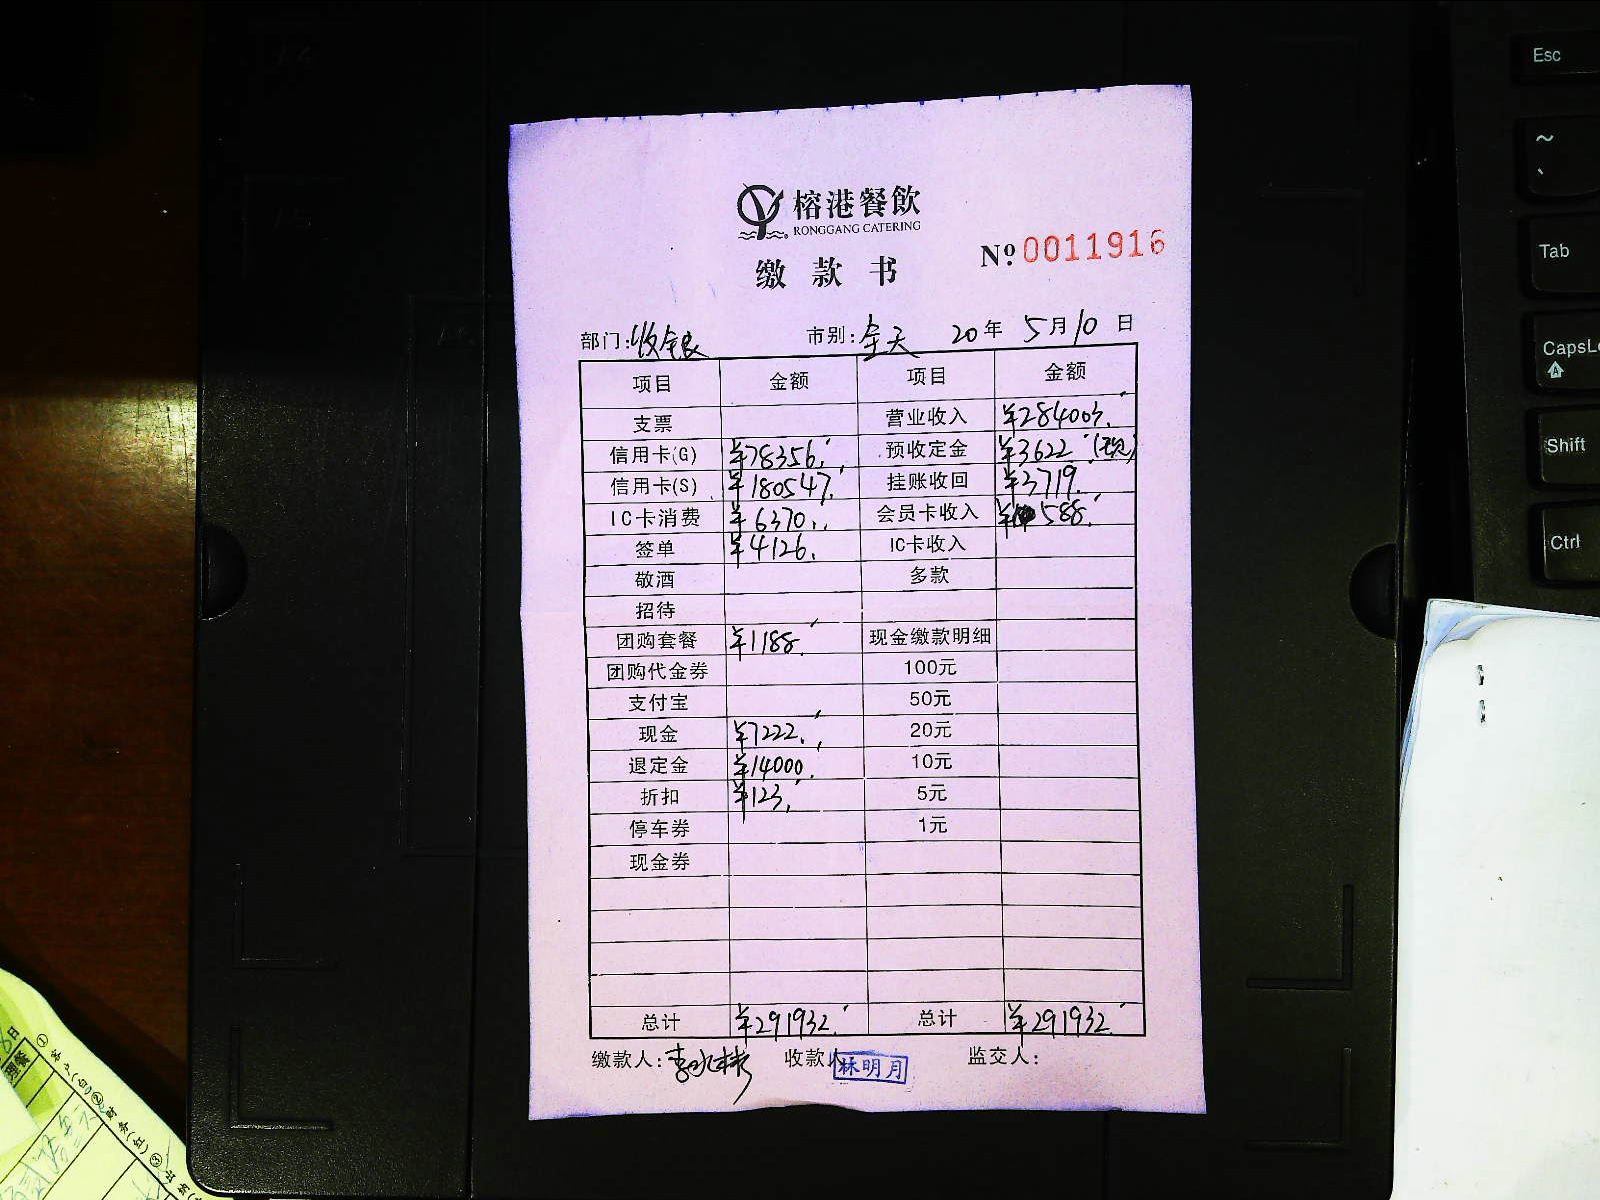 榕港餐飲
RONGGANG CATERING
缴款书
№ 0011916
部门:收银 市别:全天 20年 5月10日
项目 金额 项目 金额
支票 营业收入 ¥284003.
信用卡(G) ¥78356. 预收定金 ¥3622
信用卡(S) ¥180547. 挂账收回 ¥3719.
IC卡消费 ¥6370. 会员卡收入 ¥588.
签单 ¥4126. IC卡收入
敬酒 多款
招待
团购套餐 ¥1188. 现金缴款明细
团购代金券 100元
支付宝 50元
现金 ¥7222. 20元
退定金 ¥14000. 10元
折扣 ¥123. 5元
停车券 1元
现金券
总计 ¥291932. 总计 ¥291932.
缴款人: 收款人 林明月 监交人:
Esc
~
Tab
CapsLo
Shift
Ctrl